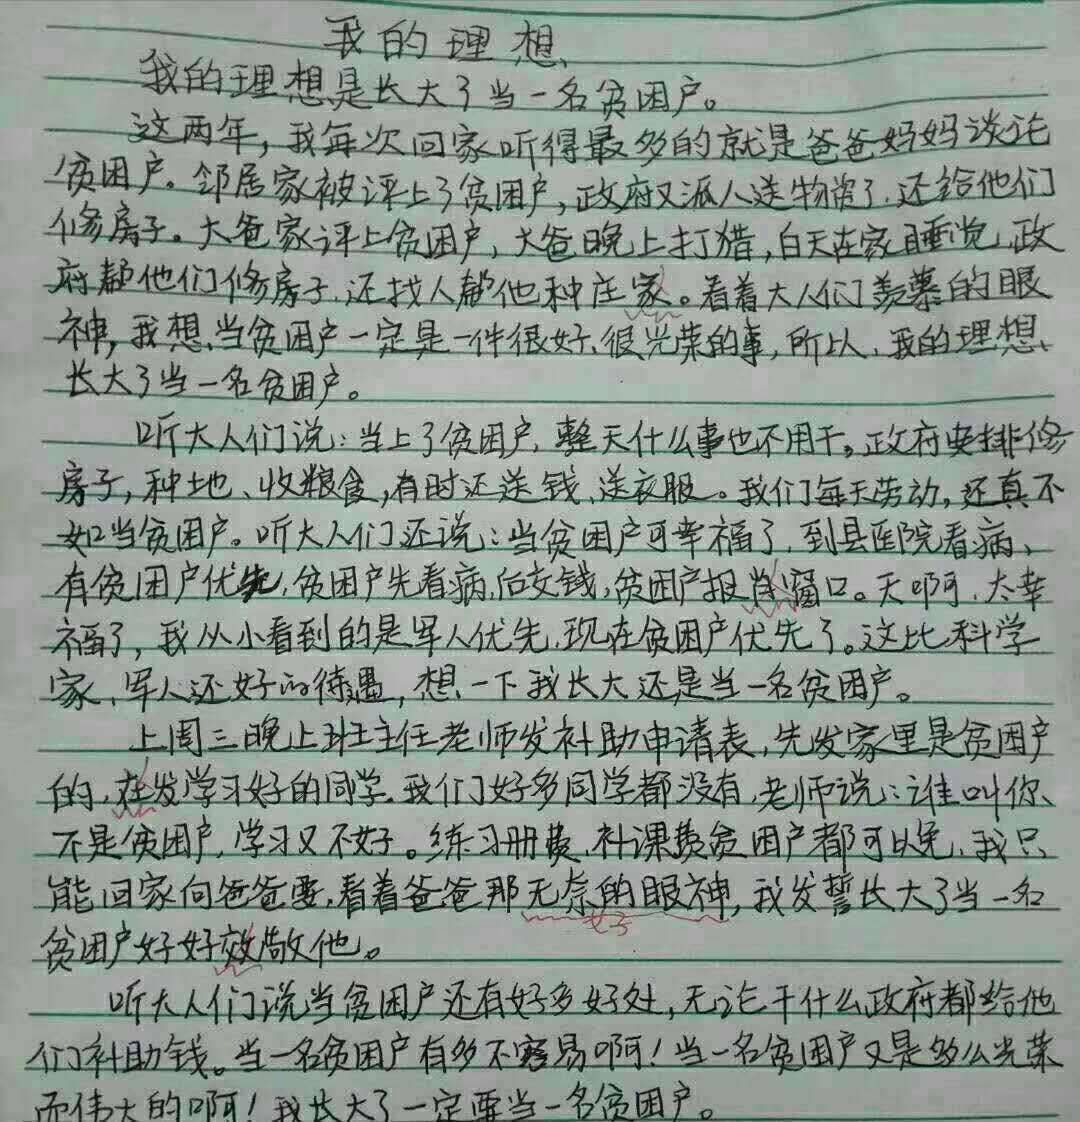 我的理想
我的理想是长大了当一名贫困户。
这两年,我每次回家听得最多的就是爸爸妈妈谈论
贫困户。邻居家被评上了贫困户,政府又派人送物资了,还给他们
修房子。大爸家评上贫困户,大爸晚上打猎,白天在家睡觉,政
府帮他们修房子,还找人帮他种庄家。看着大人们羡慕的眼
神,我想,当贫困户一定是一件很好、很光荣的事,所以,我的理想、
长大了当一名贫困户。
听大人们说:当上了贫困户,整天什么事也不用干。政府安排修
房子,种地、收粮食,有时还送钱、送衣服。我们每天劳动,还真不
如当贫困户。听大人们还说:当贫困户可幸福了,到县医院看病、
有贫困户优先,贫困户先看病,后交钱,贫困户报肖窗口。天啊,太幸
福了,我从小看到的是军人优先,现在贫困户优先了。这比科学
家,军人还好的待遇,想一下我长大还是当一名贫困户。
上周三晚上班主任老师发补助申请表,先发家里是贫困户
的,在发学习好的同学,我们好多同学都没有,老师说:谁叫你、
不是贫困户,学习又不好。练习册费,补课费贫困户都可以免,我只
能回家向爸爸要,看着爸爸那无奈的眼神,我发誓长大了当一名
好
贫困户好好效敬他。
听大人们说当贫困户还有好多好处,无论干什么政府都给他
们补助钱。当一名贫困户有多不容易啊!当一名贫困户又是多么光荣
而伟大的啊!我长大了一定要当一名贫困户。